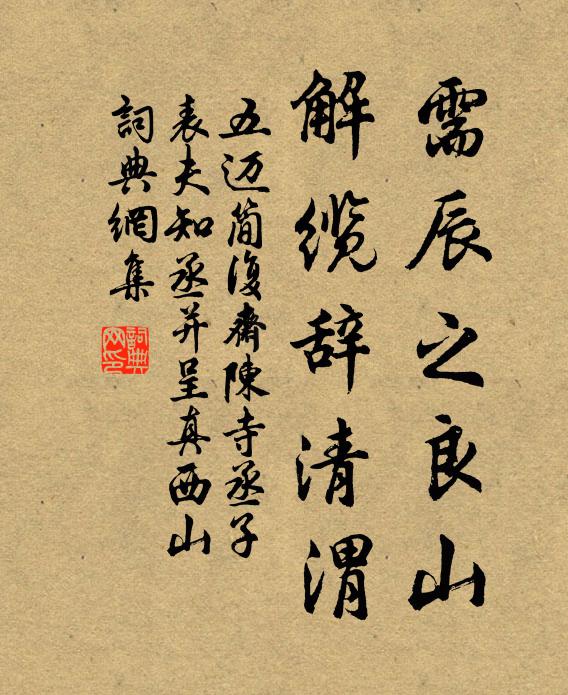 需辰之良山
解缆辞清渭
五迈简复斋陳寺丞子
表夫知丞并呈真西山
詞典網集
詞典
网印